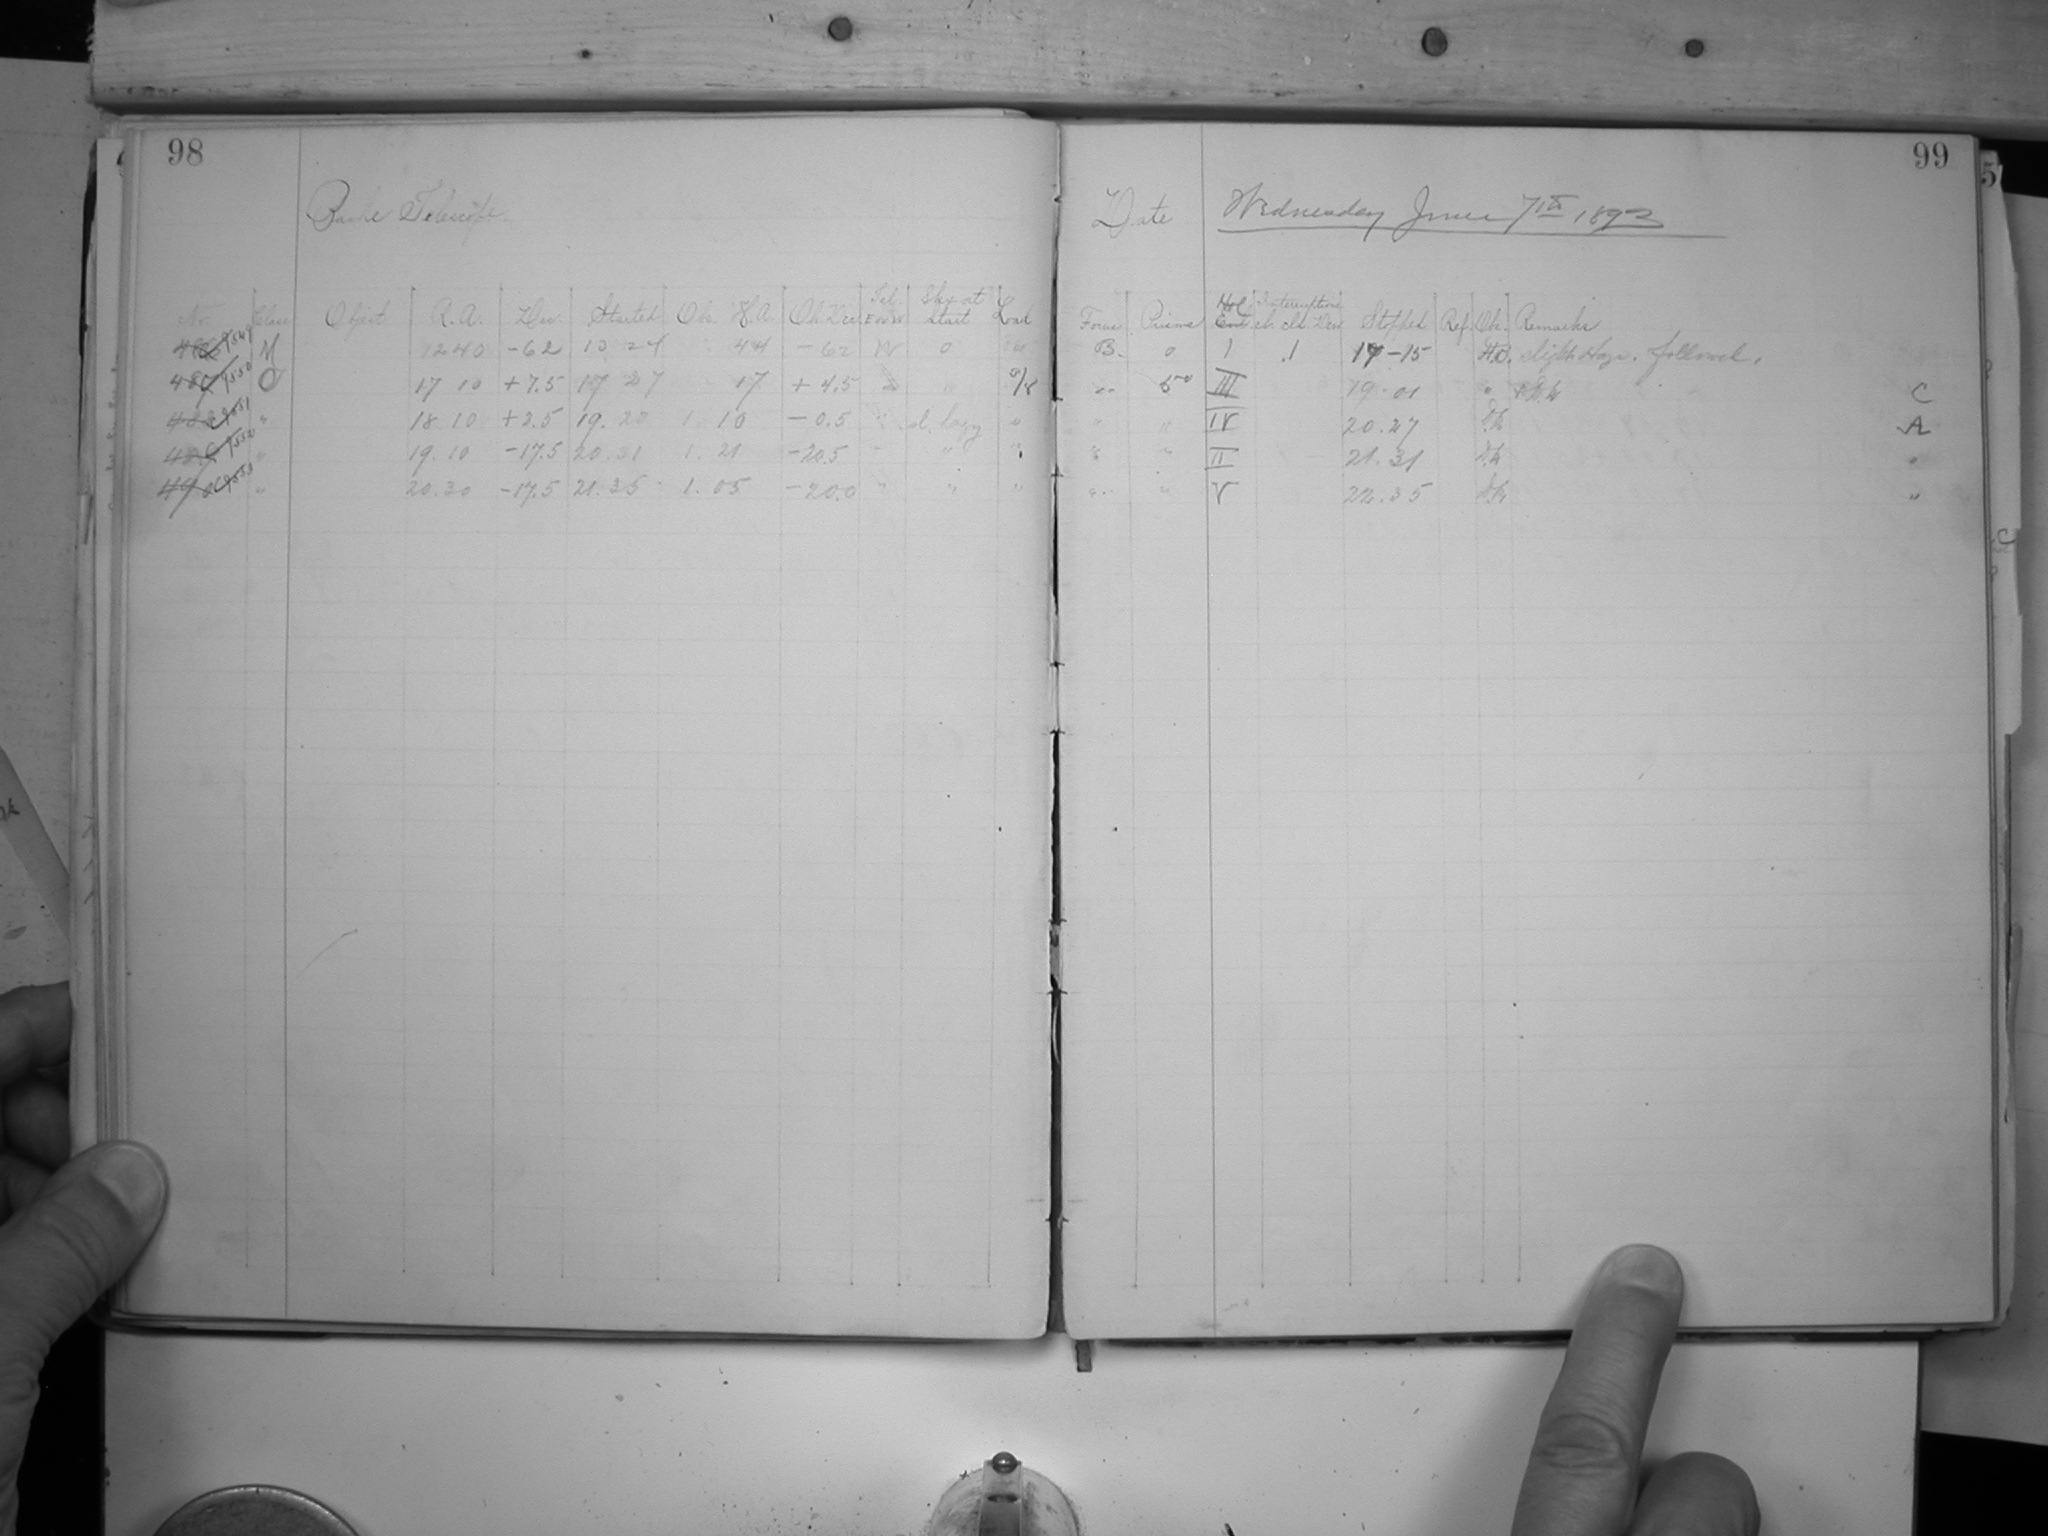 98
Bache Telescope.
No. Class Object R.A. Dec. Started Obs. H.A. Ob. Dec. Tel. E or W Sky at Start Load
9549 M 12 40 -62 13 24 44 -62 W 0 "
9550 O 17 10 +7.5 17 27 17 +4.5 " 8/8
9551 " 18 10 +2.5 19. 20 1 10 -0.5 " sl. hazy "
9552 " 19. 10 -17.5 20. 31 1. 21 -20.5 " " "
9553 " 20. 30 -17.5 21. 35 1. 05 -20.0 " " "
99
Date Wednesday June 7th 1893
Focus Prisms Stopped Ref. Ob. Remarks
B. 0 1 .1 14-15 slight Haze. followed.
" 50 III 19-01 " C
" " IV 20.27 A
" " II 21.31 "
" " V 22.35 "
5